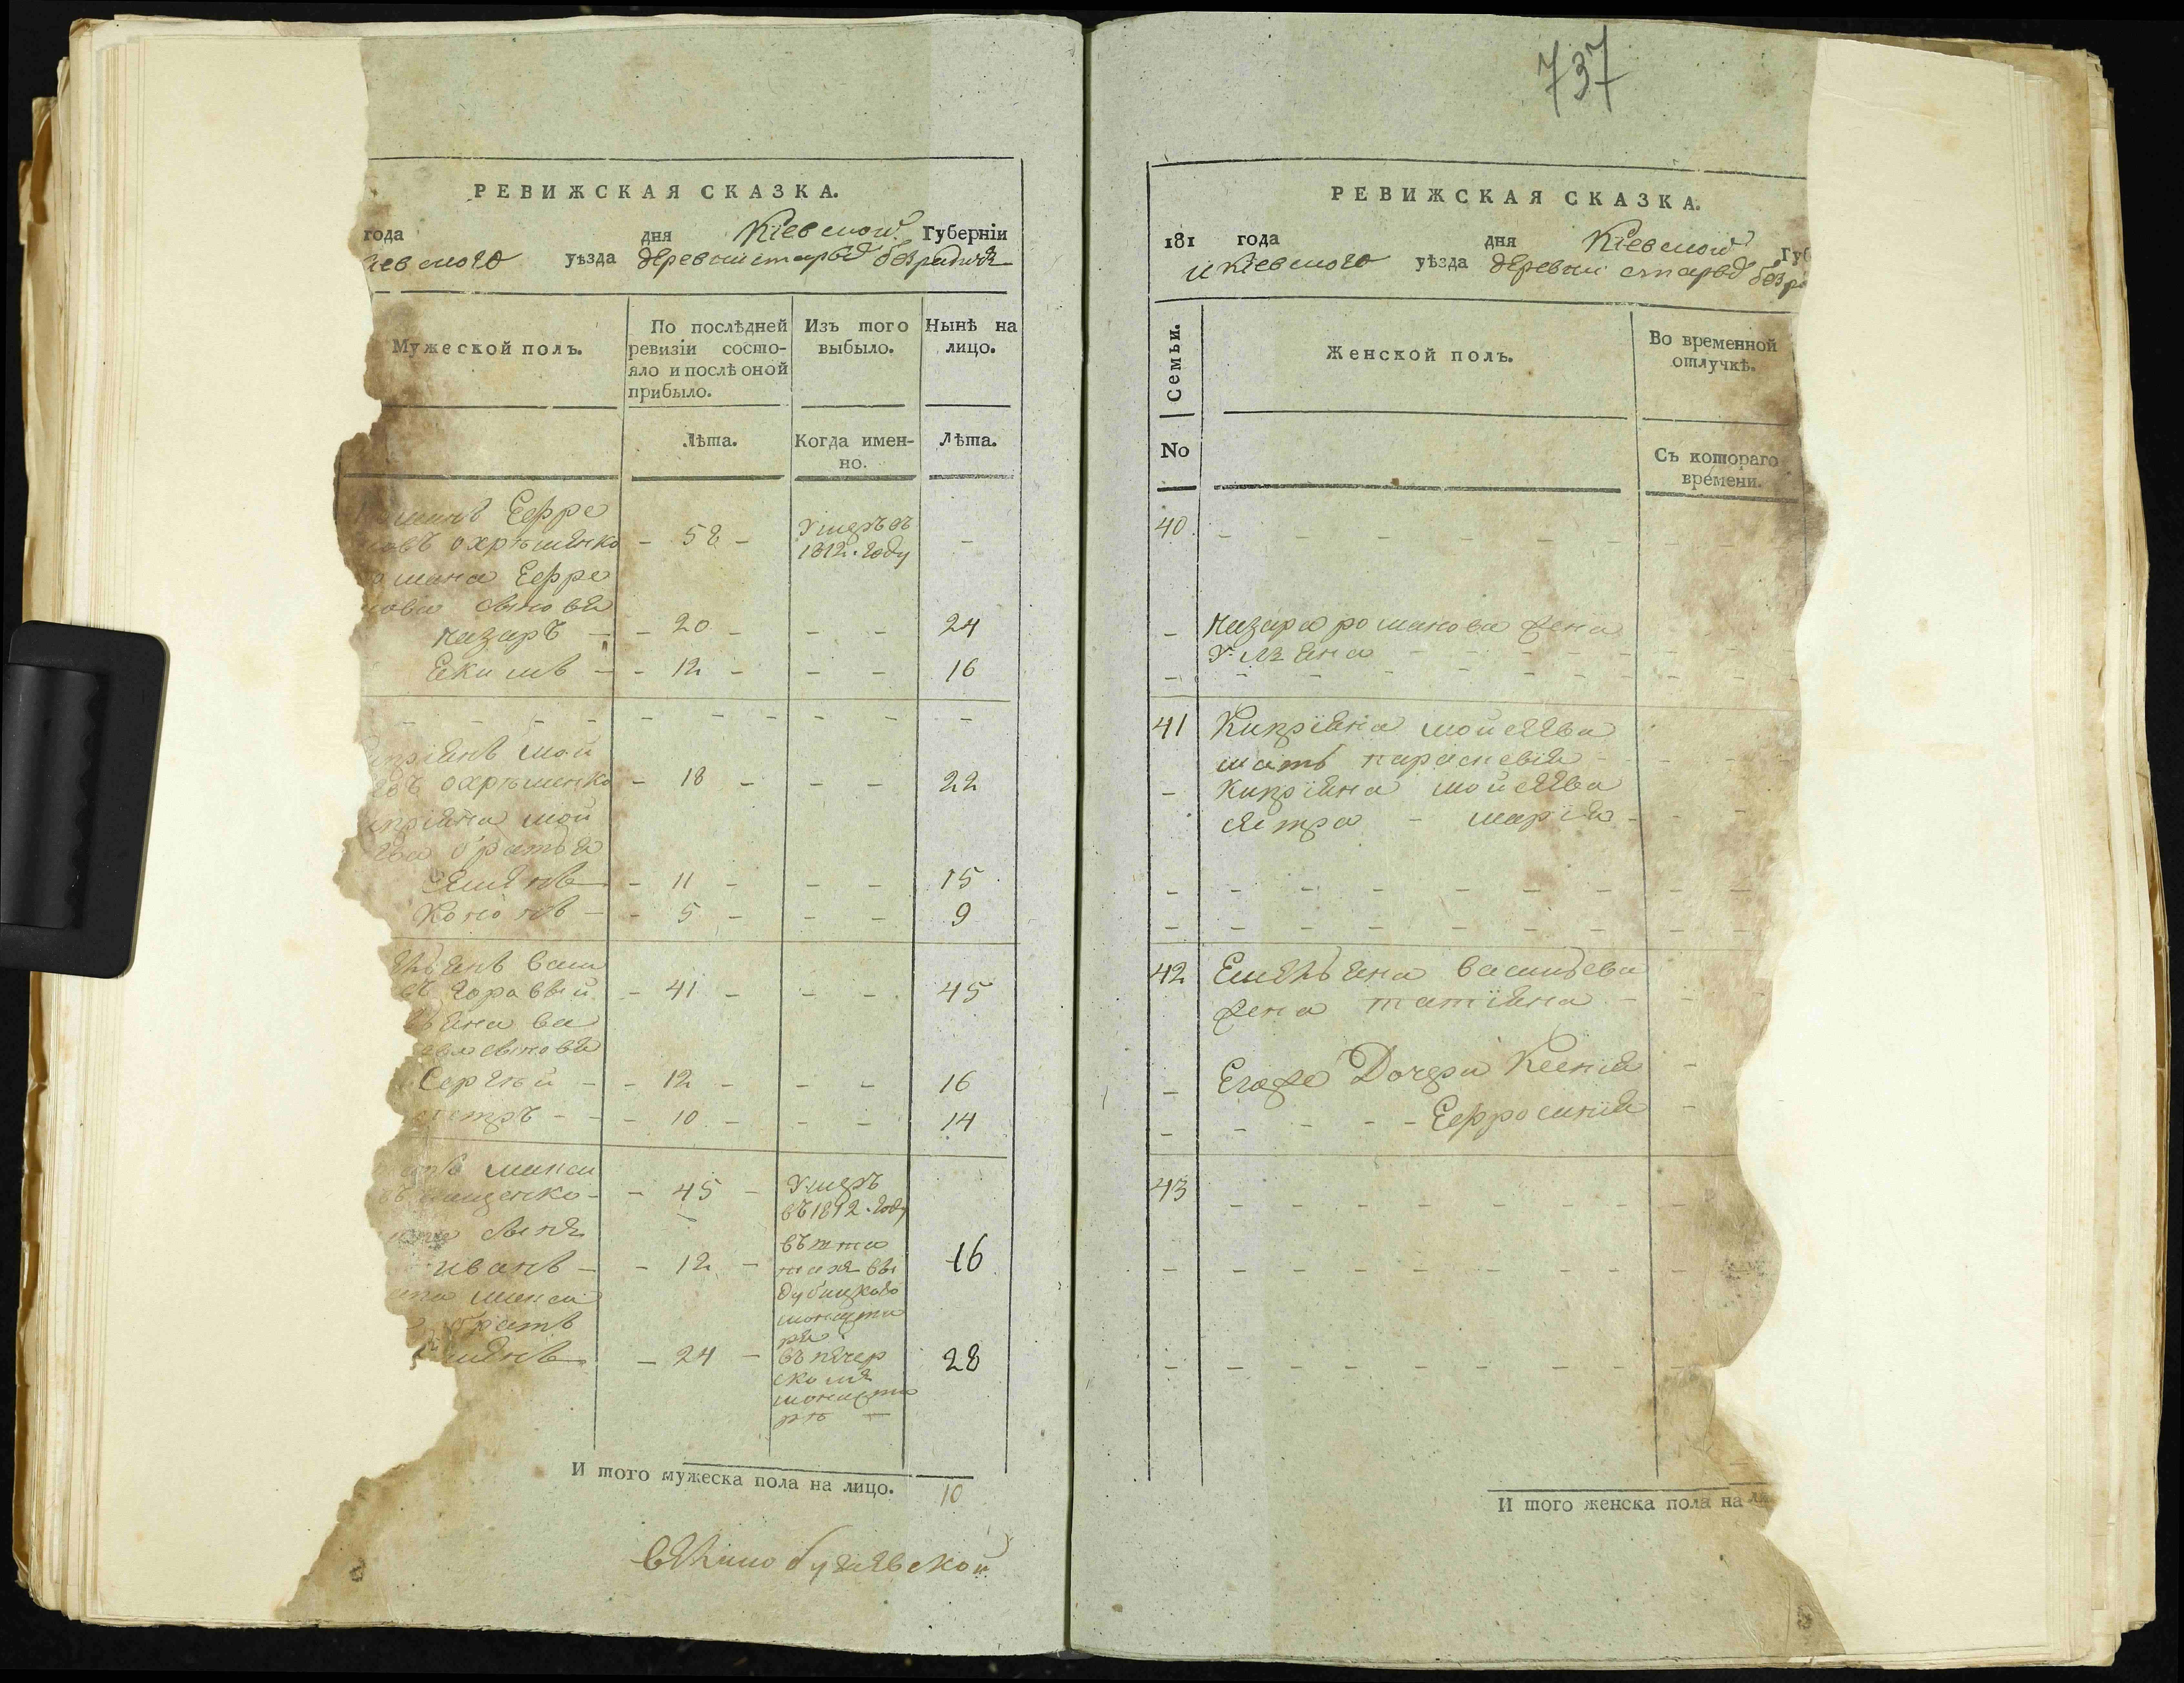 РЕВИЖСКАЯ СКАЗКА.
года дня Кіевской Губерніи
уѣзда деревни старыѣ безрадичи
Мужеской полъ.
По послѣдней ревизіи состо-
яло и послѣ оной
прибыло.
Изъ того
выбыло.
Нынѣ на
лицо.
Лѣта.
Когда имен-
но.
Лѣта.
Ефре
овъ охрѣменко - 58 - Умеръ въ
1812. году -
мана Ефре
сынове
назаръ - - 20 - - - 24
Екимъ - - 12 - - - 16
- - - - - - - - - -
пріянъ мой
охрѣменко - 18 - - - 22
пріяна мой
братья
Семенъ - 11 - - - 15
Кононъ - - 5 - - - 9
ельянъ васи
горовый - 41 - - - 45
ьяна ва
сынове
Сергѣй - - 12 - - - 16
петръ - - - 10 - - - 14
макси
ищенко - - 45 - Умеръ
въ 1812. году
сынъ
иванъ - - 12 - 16
вы
дубицкого
монасты
ря
макси
братъ
менъ - 24 - въ печер
ском
монасты
рѣ - 28
И того мужеска пола на лицо. 10
737
РЕВИЖСКАЯ СКАЗКА.
181 года дня Кіевской Губ
и Кіевского уѣзда деревни старыѣ безра
Семьи.
Женской полъ.
Во временной
отлучкѣ.
No
Съ котораго
времени.
40. - - - - - - - -
- назара романова жена
Улѣяна - - - - - -
- - - - - - - - -
41 Кипріяна мойсеева
мать параскевія - - -
- Кипріяна мойсеева
сестра - марія - -
- - - - - - - - -
- - - - - - - - -
42 Емельяна васильева
жена татіяна - - -
- Егоже Дочери Ксенія -
- - - - - Ефросинія -
43 - - - - - - - -
- - - - - - - -
- - - - - - - -
И того женска пола на ли